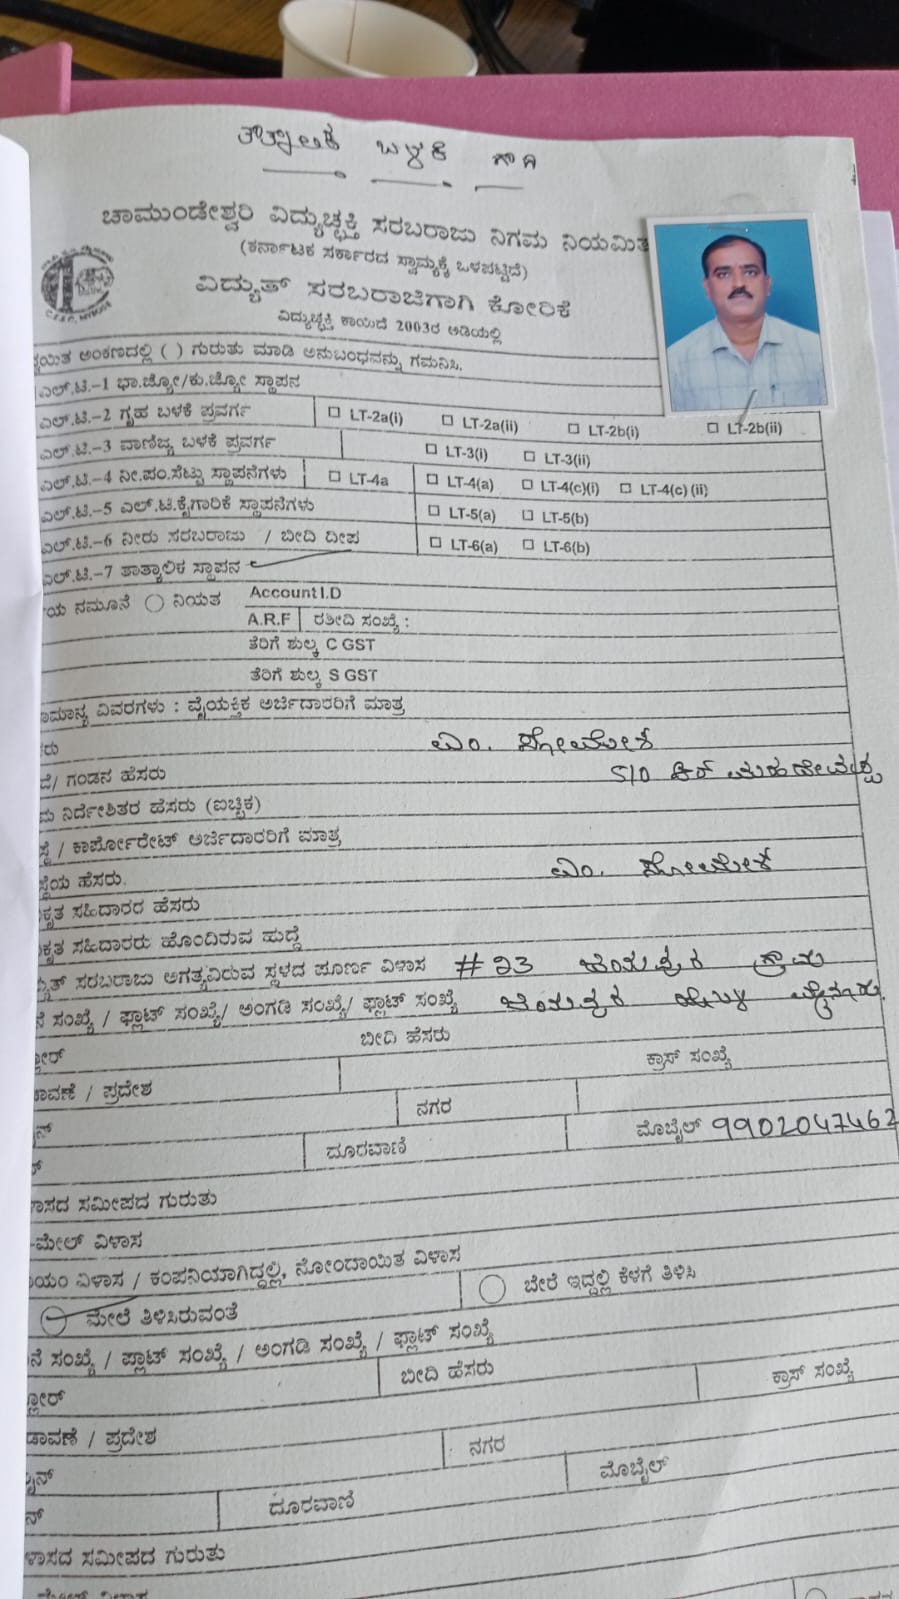 ತಾತ್ಕಾಲಿಕ ಬಳಕೆ ಗಾಗಿ
ಚಾಮುಂಡೇಶ್ವರಿ ವಿದ್ಯುಚ್ಛಕ್ತಿ ಸರಬರಾಜು ನಿಗಮ ನಿಯಮಿತ
(ಕರ್ನಾಟಕ ಸರ್ಕಾರದ ಸ್ವಾಮ್ಯಕ್ಕೆ ಒಳಪಟ್ಟಿದೆ)
ವಿದ್ಯುತ್ ಸರಬರಾಜಿಗಾಗಿ ಕೋರಿಕೆ
ವಿದ್ಯುಚ್ಛಕ್ತಿ ಕಾಯಿದೆ 2003ರ ಅಡಿಯಲ್ಲಿ
C.E.S.C, MYSORE
ಅಂಕಣದಲ್ಲಿ ( ) ಗುರುತು ಮಾಡಿ ಅನುಬಂಧವನ್ನು ಗಮನಿಸಿ.
ಎಲ್.ಟಿ.-1 ಭಾ.ಜ್ಯೋ/ಕು.ಜ್ಯೋ ಸ್ಥಾಪನ
ಎಲ್.ಟಿ.-2 ಗೃಹ ಬಳಕೆ ಪ್ರವರ್ಗ LT-2a(i) LT-2a(ii) LT-2b(i) LT-2b(ii)
ಎಲ್.ಟಿ.-3 ವಾಣಿಜ್ಯ ಬಳಕೆ ಪ್ರವರ್ಗ LT-3(i) LT-3(ii)
ಎಲ್.ಟಿ.-4 ನೀ.ಪಂ.ಸೆಟ್ಟು ಸ್ಥಾಪನೆಗಳು LT-4a LT-4(a) LT-4(c)(i) LT-4(c) (ii)
ಎಲ್.ಟಿ.-5 ಎಲ್.ಟಿ.ಕೈಗಾರಿಕೆ ಸ್ಥಾಪನೆಗಳು LT-5(a) LT-5(b)
ಎಲ್.ಟಿ.-6 ನೀರು ಸರಬರಾಜು / ಬೀದಿ ದೀಪ LT-6(a) LT-6(b)
ಎಲ್.ಟಿ.-7 ತಾತ್ಕಾಲಿಕ ಸ್ಥಾಪನ
ನಮೂನೆ ನಿಯತ Account I.D
A.R.F ರಶೀದಿ ಸಂಖ್ಯೆ :
ತೆರಿಗೆ ಶುಲ್ಕ C GST
ತೆರಿಗೆ ಶುಲ್ಕ S GST
ವಿವರಗಳು : ವೈಯಕ್ತಿಕ ಅರ್ಜಿದಾರರಿಗೆ ಮಾತ್ರ
ಎಂ. ಸೋಮೇಶ
/ ಗಂಡನ ಹೆಸರು S/O
ನಿರ್ದೇಶಿತರ ಹೆಸರು (ಐಚ್ಛಿಕ)
/ ಕಾರ್ಪೋರೇಟ್ ಅರ್ಜಿದಾರರಿಗೆ ಮಾತ್ರ
ಹೆಸರು. ಎಂ. ಸೋಮೇಶ
ಸಹಿದಾರರ ಹೆಸರು
ಸಹಿದಾರರು ಹೊಂದಿರುವ ಹುದ್ದೆ
ಸರಬರಾಜು ಅಗತ್ಯವಿರುವ ಸ್ಥಳದ ಪೂರ್ಣ ವಿಳಾಸ # 23 ಜಯಪುರ ಗ್ರಾಮ
ಸಂಖ್ಯೆ / ಫ್ಲಾಟ್ ಸಂಖ್ಯೆ/ ಅಂಗಡಿ ಸಂಖ್ಯೆ/ ಫ್ಲಾಟ್ ಸಂಖ್ಯೆ ಜಯಪುರ ಹೋಬಳಿ ಮೈಸೂರು
ಬೀದಿ ಹೆಸರು
ಕ್ರಾಸ್ ಸಂಖ್ಯೆ
/ ಪ್ರದೇಶ
ನಗರ
ದೂರವಾಣಿ ಮೊಬೈಲ್ 9902047462
ಸಮೀಪದ ಗುರುತು
-ಮೇಲ್ ವಿಳಾಸ
ವಿಳಾಸ / ಕಂಪನಿಯಾಗಿದ್ದಲ್ಲಿ, ನೋಂದಾಯಿತ ವಿಳಾಸ
ಮೇಲೆ ತಿಳಿಸಿರುವಂತೆ ಬೇರೆ ಇದ್ದಲ್ಲಿ ಕೆಳಗೆ ತಿಳಿಸಿ
ಸಂಖ್ಯೆ / ಪ್ಲಾಟ್ ಸಂಖ್ಯೆ / ಅಂಗಡಿ ಸಂಖ್ಯೆ / ಫ್ಲಾಟ್ ಸಂಖ್ಯೆ
ಬೀದಿ ಹೆಸರು
ಕ್ರಾಸ್ ಸಂಖ್ಯೆ
/ ಪ್ರದೇಶ
ನಗರ
ದೂರವಾಣಿ ಮೊಬೈಲ್
ಸಮೀಪದ ಗುರುತು